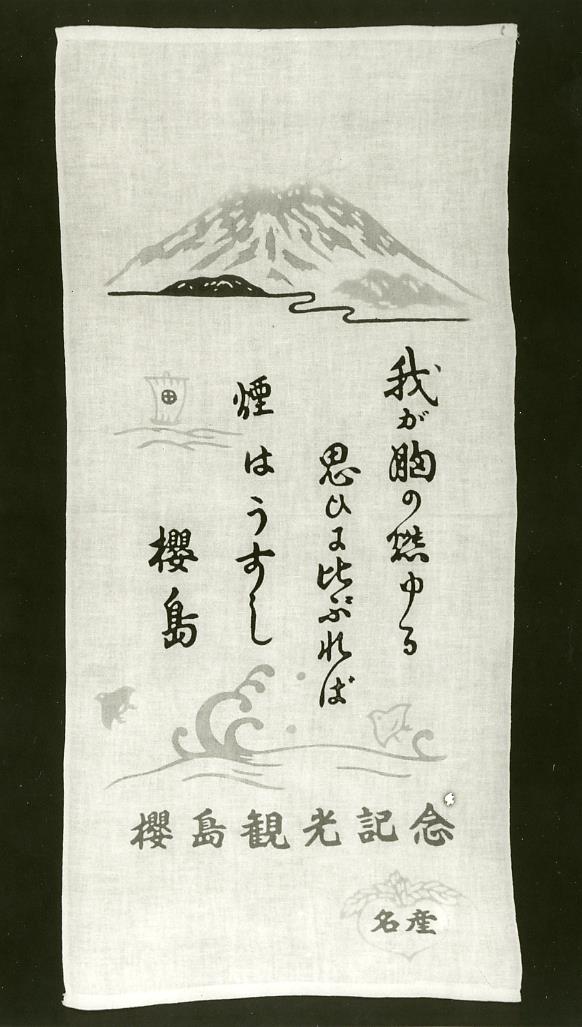 我が胸の燃ゆる
思ひに比ぶれば
煙はうすし
櫻島
櫻島観光記念
名産